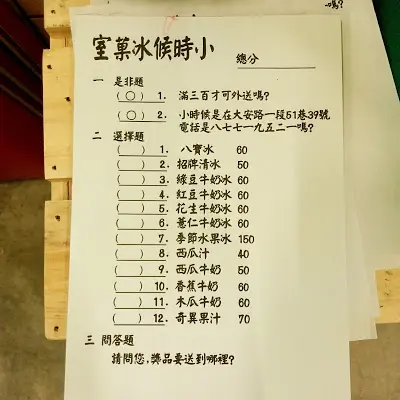 嗎?
室菓冰候時小
總分
一 是非題
(○) 1. 滿三百才可外送嗎?
(○) 2. 小時候是在大安路一段51巷39號
電話是八七七一九五二一嗎?
二 選擇題
( ) 1. 八寶冰 60
( ) 2. 招牌清冰 50
( ) 3. 綠豆牛奶冰 60
( ) 4. 紅豆牛奶冰 60
( ) 5. 花生牛奶冰 60
( ) 6. 薏仁牛奶冰 60
( ) 7. 季節水果冰 150
( ) 8. 西瓜汁 40
( ) 9. 西瓜牛奶 50
( ) 10. 香蕉牛奶 60
( ) 11. 木瓜牛奶 60
( ) 12. 奇異果汁 70
三 問答題
請問您,獎品要送到哪裡?